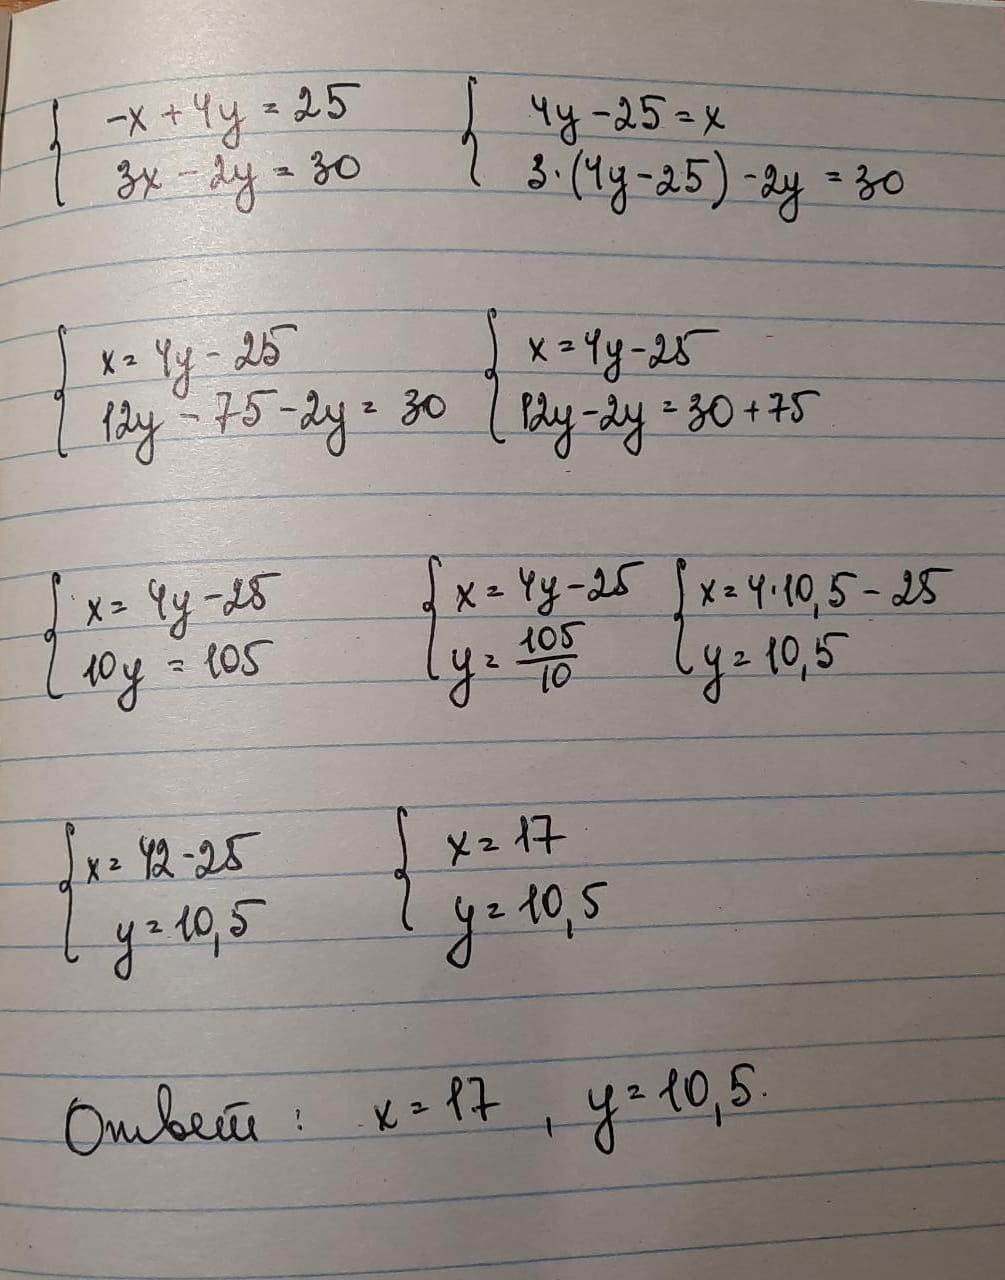 -x + 4y = 25
3x - 2y = 30
4y - 25 = x
3·(4y - 25) - 2y = 30
x = 4y - 25
12y - 75 - 2y = 30
x = 4y - 25
12y - 2y = 30 + 75
x = 4y - 25
10y = 105
x = 4y - 25
y = 105/10
x = 4·10,5 - 25
y = 10,5
x = 42 - 25
y = 10,5
x = 17
y = 10,5
Ответ: x = 17, y = 10,5.